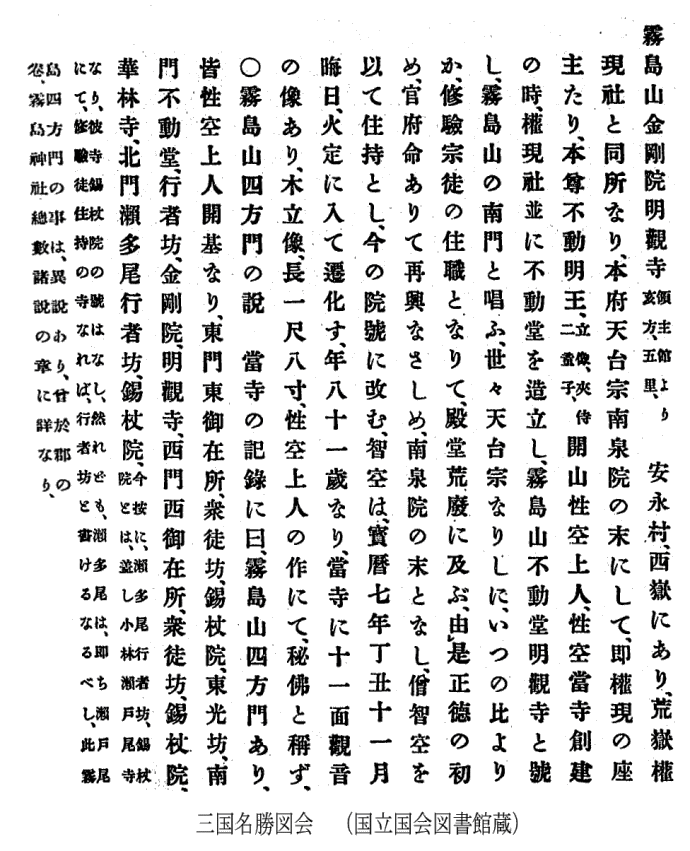 霧島山金剛院明觀寺 領主館より亥方、五里、 安永村、西嶽にあり、荒嶽權
現社と同所なり、本府天台宗南泉院の末にして、即權現の座
主たり、本尊不動明王、立像、夾侍二童子、 開山性空上人、性空當寺創建
の時、權現社並に不動堂を造立し、霧島山不動堂明觀寺と號
し、霧島山の南門と唱ふ、世々天台宗なりしに、いつの比より
か、修驗宗徒の住職となりて、殿堂荒廢に及ぶ、由是正德の初
め、官府命ありて再興なさしめ、南泉院の末となし、僧智空を
以て住持とし、今の院號に改む、智空は、寶曆七年丁丑十一月
晦日、火定に入て遷化す、年八十一歲なり、當寺に十一面觀音
の像あり、木立像、長一尺八寸、性空上人の作にて、秘佛と稱ず、
〇霧島山四方門の說 當寺の記錄に曰、霧島山四方門あり、
皆性空上人開基なり、東門東御在所、衆徒坊、錫杖院、東光坊、南
門不動堂、行者坊、金剛院、明觀寺、西門西御在所、衆徒坊、錫杖院、
華林寺、北門瀨多尾行者坊、錫杖院、今按に、瀨多尾行者坊、錫杖
院とは、蓋し小林瀨戸尾寺
なり、彼寺錫杖院の號はなし、然れども、瀨多尾は、即ち瀨戸尾
にて、修驗徒住持の寺なれば、行者坊と書けるなるべし、此霧
島四方門の事は、異說あり、曾於郡の
卷、霧島神社總數諸說の章に詳なり、
三国名勝図会 (国立国会図書館蔵)